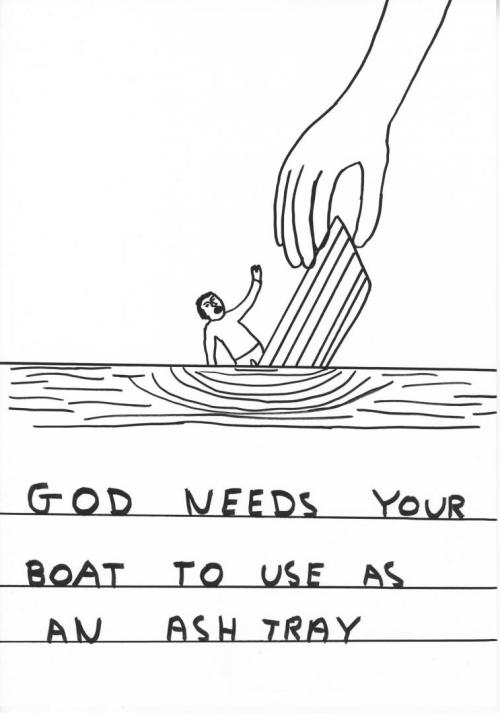 GOD NEEDS YOUR
BOAT TO USE AS
AN ASH TRAY